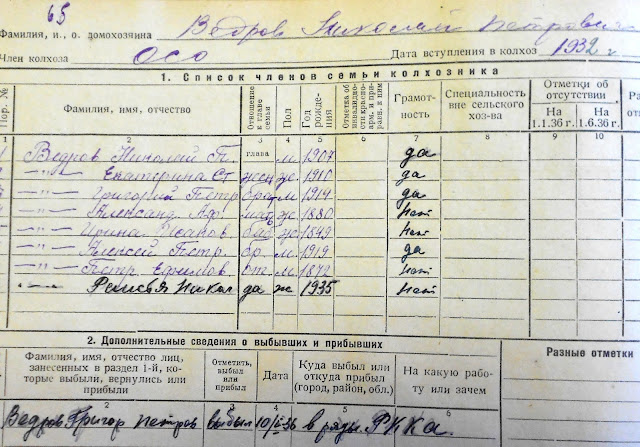 65
Фамилия, и., о. домохозяина Ведров Николай Петрович
Член колхоза ОСО Дата вступления в колхоз 1932 г
1. Список членов семьи колхозника
Пор. № Фамилия, имя, отчество Отношение к главе семьи Пол Год рождения Отметка об инвалидности красноарм. и приравн. к ним Грамотность Специальность вне сельского хоз-ва Отметки об отсутствии На 1.1.36 г. На 1.6.36 г.
1 2 3 4 5 6 7 8 9 10
Ведров Николай П. глава м 1907 да
-"- Екатерина Ст жен ж 1910 да
-"- Григорий Петр брат м 1914 да
-"- Александ Аф. мать ж 1880 нет
-"- Ирина Иванов баб ж 1849 нет
-"- Алексей Петр. бр. м 1919 да
-"- Петр Ефимов. от. м 1872 нет
-"- Никол ж 1935 нет
2. Дополнительные сведения о выбывших и прибывших
Фамилия, имя, отчество лиц, занесенных в раздел 1-й, которые выбыли, вернулись или прибыли Отметить, выбыл или прибыл Дата Куда выбыл или откуда прибыл (город, район, обл.) На какую работу или зачем Разные отметки
2 3 4 5 6
Ведров Григор Петров выбыл в ряды РККА.